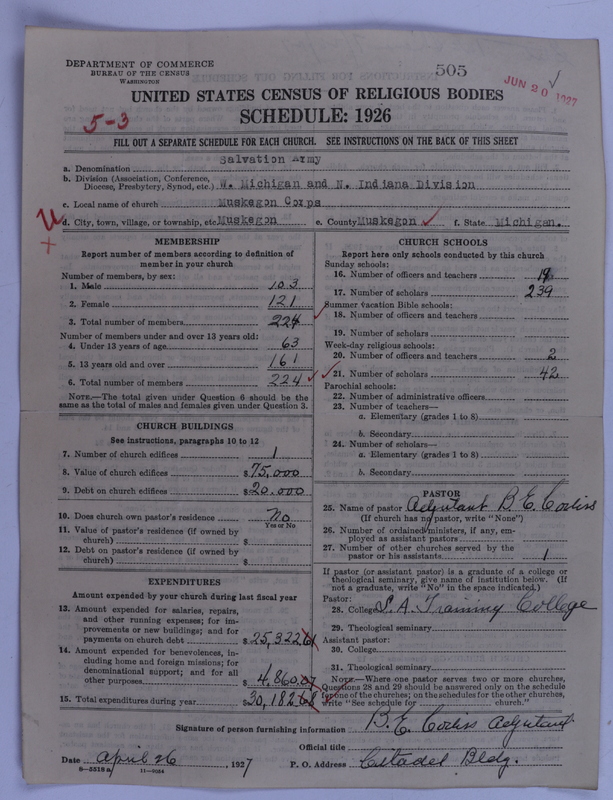 DEPARTMENT OF COMMERCE
BUREAU OF THE CENSUS
WASHINGTON
505
JUN 20 1927
UNITED STATES CENSUS OF RELIGIOUS BODIES
SCHEDULE: 1926
5-3
FILL OUT A SEPARATE SCHEDULE FOR EACH CHURCH. SEE INSTRUCTIONS ON THE BACK OF THIS SHEET
a. Denomination Salvation Army
b. Division (Association, Conference, Diocese, Presbytery, Synod, etc.) W. Michigan and N. Indiana Division
c. Local name of church Muskegon Corps
d. City, town, village, or township, etc. Muskegon e. County Muskegon f. State Michigan.
MEMBERSHIP
Report number of members according to definition of
member in your church
Number of members, by sex:
1. Male 103
2. Female 121
3. Total number of members 224
Number of members under and over 13 years old:
4. Under 13 years of age 63
5. 13 years old and over 161
6. Total number of members 224
NOTE.—The total given under Question 6 should be the
same as the total of males and females given under Question 3.
CHURCH BUILDINGS
See instructions, paragraphs 10 to 12
7. Number of church edifices 1
8. Value of church edifices $75,000
9. Debt on church edifices $20.000
10. Does church own pastor's residence No
Yes or No
11. Value of pastor's residence (if owned by
church) $
12. Debt on pastor's residence (if owned by
church) $
EXPENDITURES
Amount expended by your church during last fiscal year
13. Amount expended for salaries, repairs,
and other running expenses; for im-
provements or new buildings; and for
payments on church debt $25,322.61
14. Amount expended for benevolences, in-
cluding home and foreign missions; for
denominational support; and for all
other purposes $4,860.07
15. Total expenditures during year $30,182.68
CHURCH SCHOOLS
Report here only schools conducted by this church
Sunday schools:
16. Number of officers and teachers
17. Number of scholars 239
Summer vacation Bible schools:
18. Number of officers and teachers
19. Number of scholars
Week-day religious schools:
20. Number of officers and teachers 2
21. Number of scholars 42
Parochial schools:
22. Number of administrative officers
23. Number of teachers—
a. Elementary (grades 1 to 8)
b. Secondary
24. Number of scholars—
a. Elementary (grades 1 to 8)
b. Secondary
PASTOR
25. Name of pastor Adjutant B. E. Corliss
(If church has no pastor, write "None")
26. Number of ordained ministers, if any, em-
ployed as assistant pastors
27. Number of other churches served by the
pastor or his assistants 1
If pastor (or assistant pastor) is a graduate of a college or
theological seminary, give name of institution below. (If
not a graduate, write "No" in the space indicated.)
Pastor:
28. College S. A. Training College
29. Theological seminary
Assistant pastor:
30. College
31. Theological seminary
NOTE.—Where one pastor serves two or more churches,
Questions 28 and 29 should be answered only on the schedule
for one of the churches; on the schedules for the other churches,
write "See schedule for church."
Signature of person furnishing information B. E. Corliss Adjutant
Official title
Date April 26, 1927 P. O. Address Citadel Bldg.
8-5518a 11-9084